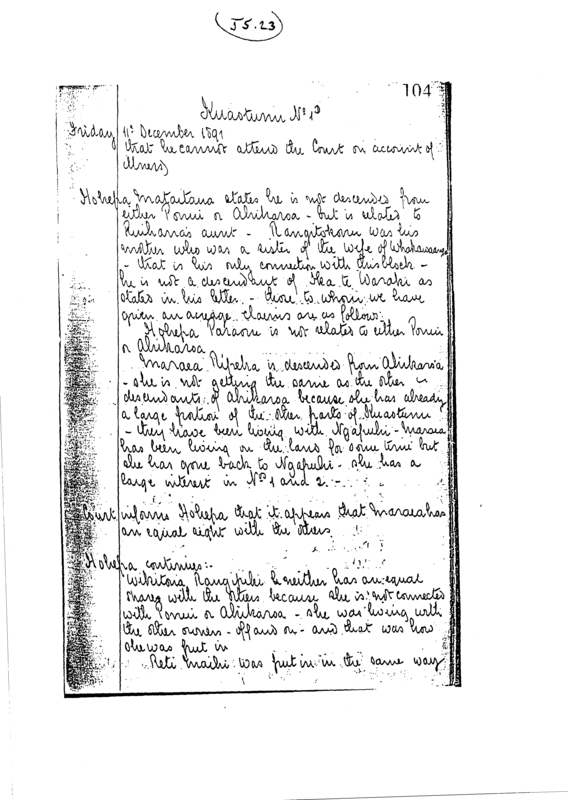 J5.23
104
Kuaotunu No 1D
Friday 11th December 1891
that he cannot attend the Court on account of
illness
Hohepa Mataitaua states he is not descended from
either Poruir or Ahikaroa - but is related to
aunt - Rangitokoru was his
mother who was a sister of the wife of
- that is his only connection with this block -
he is not a descendant of te as
stated in his letter - those to whom we have
given an acreage claims are as follows:
Hohepa Paraone is not related to either
or Ahikaroa
Maraea Ripeka is descended from Ahikaroa
- she is not getting the same as the other
descendants of Ahikaroa because she has already
a large portion of the other parts of Kuaotunu
- they have been living with Ngapuhi - Maraea
has been living on the land for some time but
she has gone back to Ngapuhi - she has a
large interest in Nos 1 and 2 -
Court informs Hohepa that it appears that Maraea has
an equal right with the others
Hohepa continues:-
Wikitoria Rangipiki neither has an equal
share with the others because she is not connected
with or Ahikaroa - she was living with
the other owners - off and on - and that was how
she was put in
Reti Maihi was put in in the same way